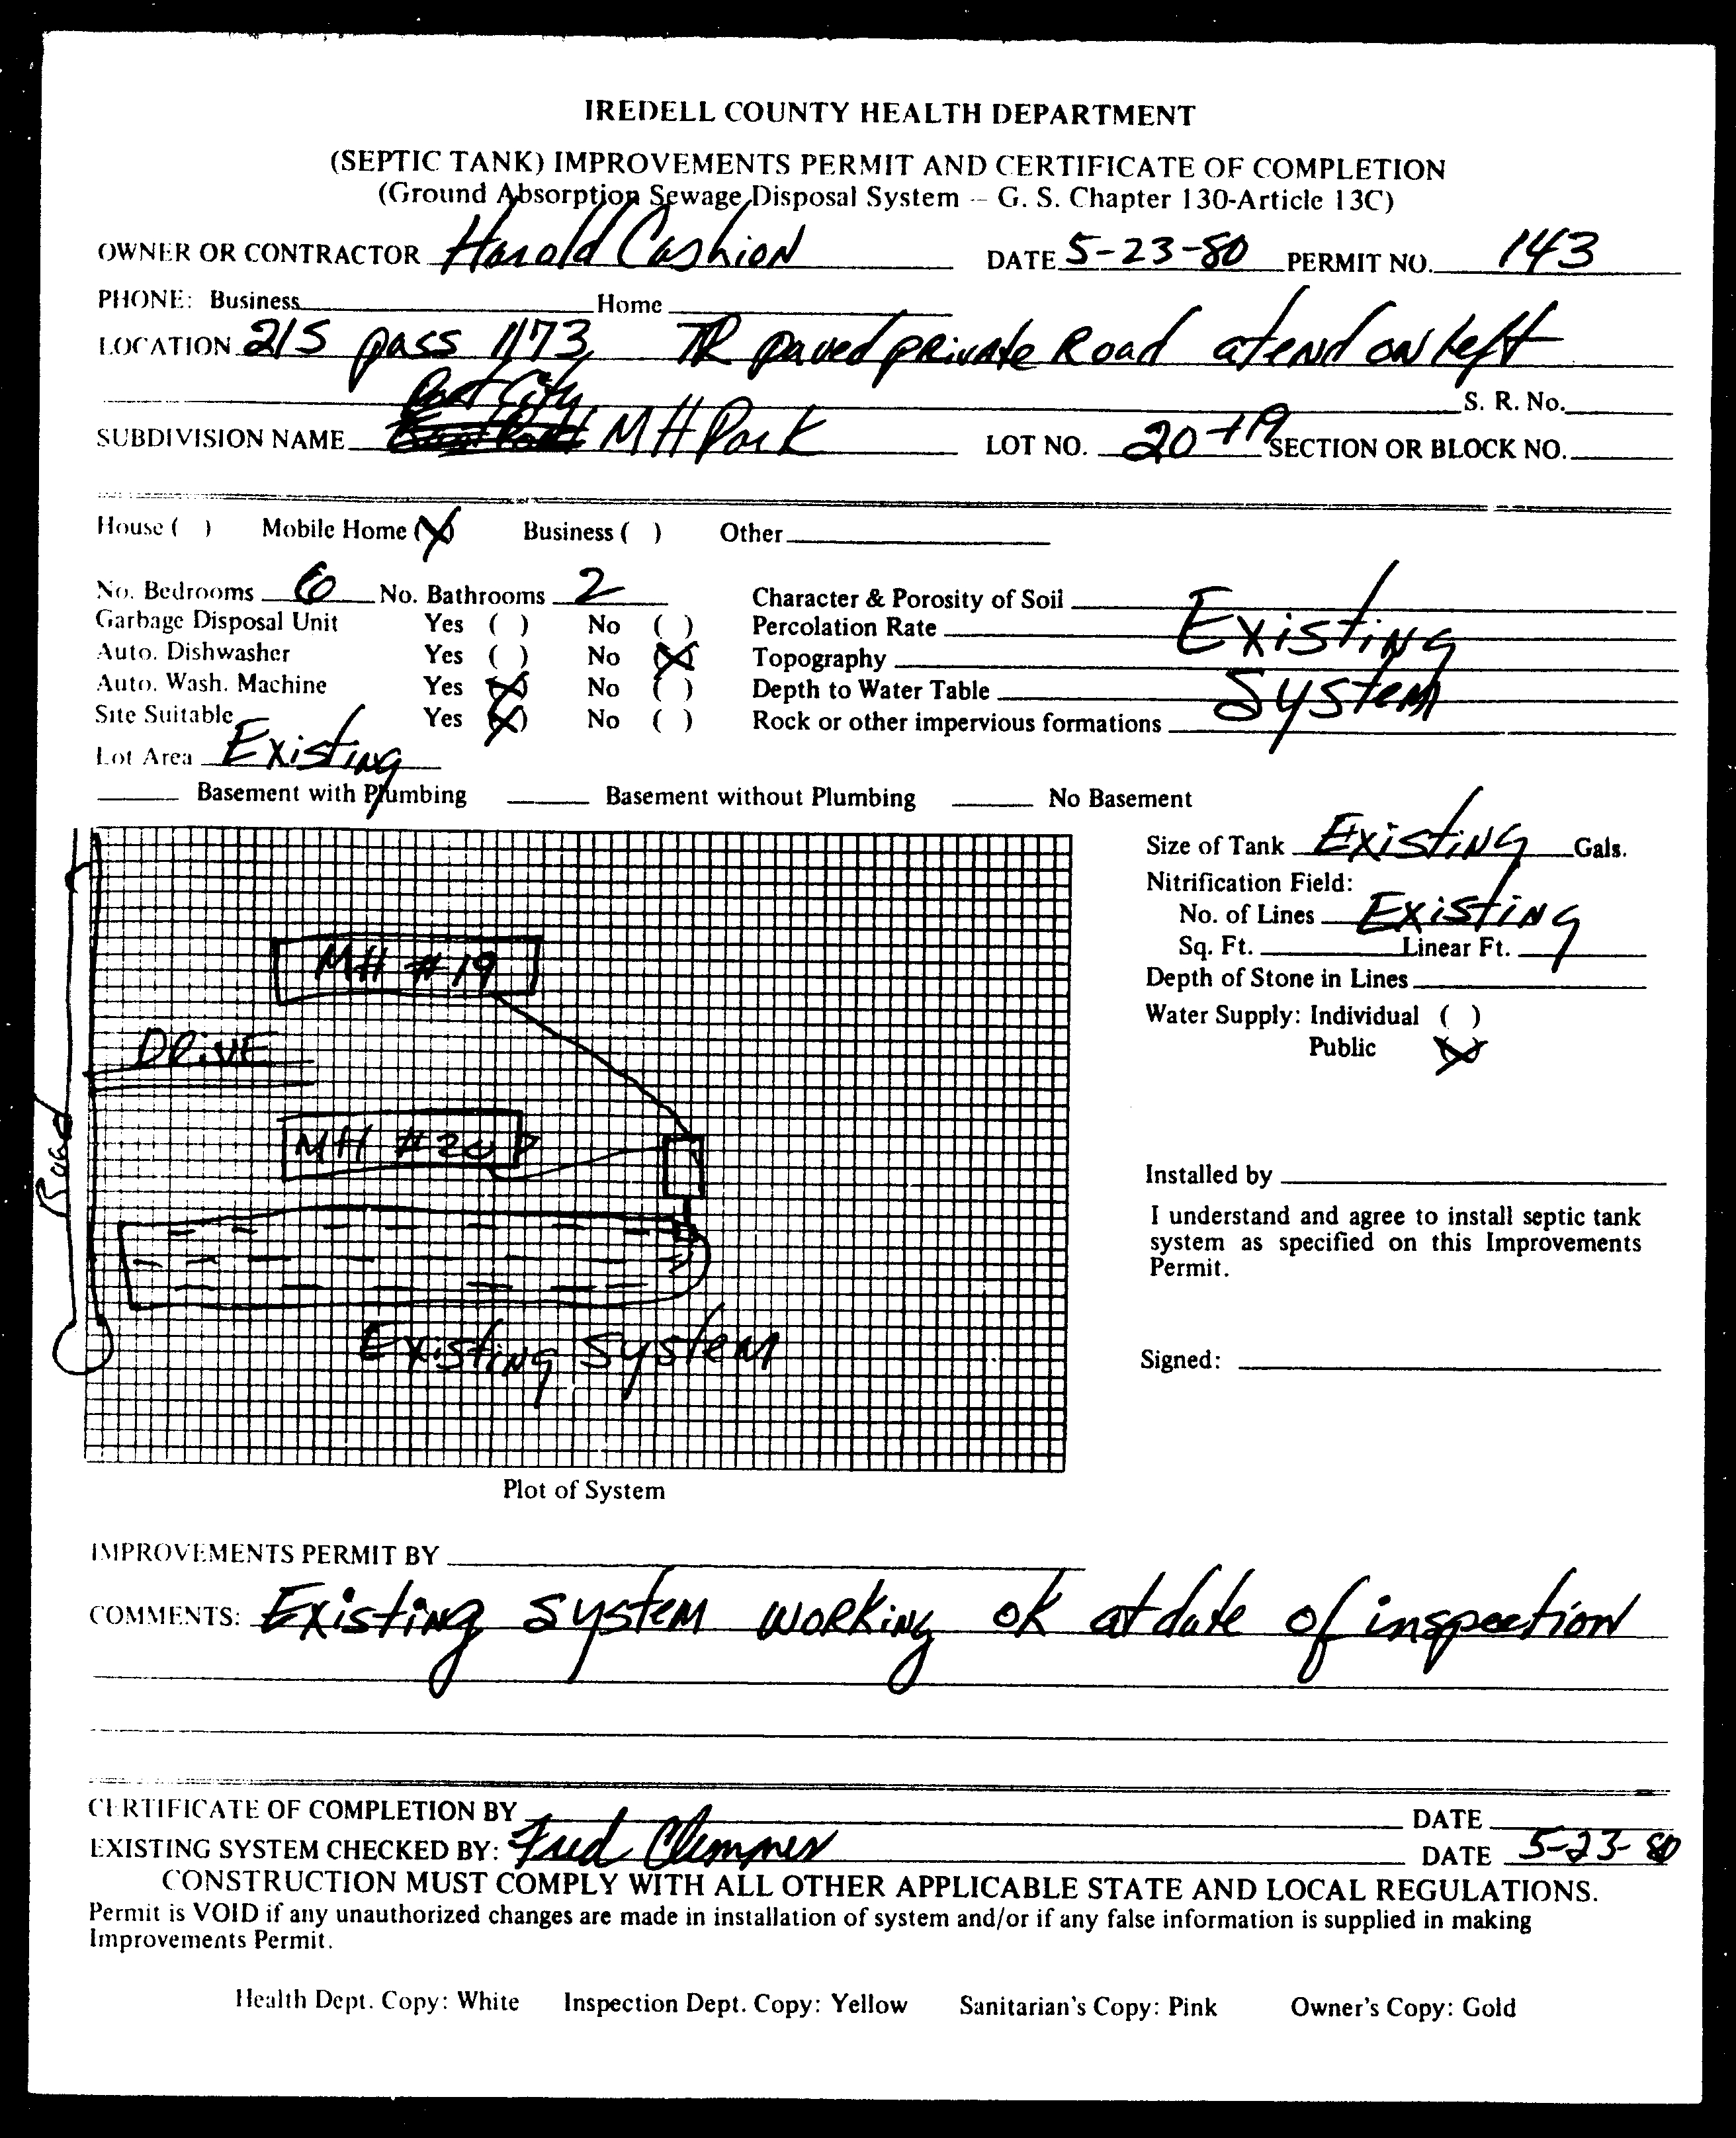 IREDELL COUNTY HEALTH DEPARTMENT
(SEPTIC TANK) IMPROVEMENTS PERMIT AND CERTIFICATE OF COMPLETION
(Ground Absorption Sewage Disposal System – G. S. Chapter 130-Article 13C)
OWNER OR CONTRACTOR Harold Cashion DATE 5-23-80 PERMIT NO. 143
PHONE: Business Home
LOCATION 21S pass 1173, TR paved private Road at end on Left
S. R. No.
Port City
SUBDIVISION NAME MH Park LOT NO. 20+19 SECTION OR BLOCK NO.
House ( ) Mobile Home (X) Business ( ) Other
No. Bedrooms 6 No. Bathrooms 2 Character & Porosity of Soil
Garbage Disposal Unit Yes ( ) No ( ) Percolation Rate Existing
Auto. Dishwasher Yes ( ) No (X) Topography
Auto. Wash. Machine Yes (X) No ( ) Depth to Water Table System
Site Suitable Yes (X) No ( ) Rock or other impervious formations
Lot Area Existing
Basement with Plumbing Basement without Plumbing No Basement
Size of Tank Existing Gals.
Nitrification Field:
No. of Lines Existing
Sq. Ft. Linear Ft.
Depth of Stone in Lines
Water Supply: Individual ( )
Public (X)
MH # 19
DRIVE
MH # 20
Road
Existing System
Installed by
I understand and agree to install septic tank
system as specified on this Improvements
Permit.
Signed:
Plot of System
IMPROVEMENTS PERMIT BY
COMMENTS: Existing system working ok at date of inspection
CERTIFICATE OF COMPLETION BY DATE
EXISTING SYSTEM CHECKED BY: Fred Clemmer DATE 5-23-80
CONSTRUCTION MUST COMPLY WITH ALL OTHER APPLICABLE STATE AND LOCAL REGULATIONS.
Permit is VOID if any unauthorized changes are made in installation of system and/or if any false information is supplied in making
Improvements Permit.
Health Dept. Copy: White Inspection Dept. Copy: Yellow Sanitarian's Copy: Pink Owner's Copy: Gold